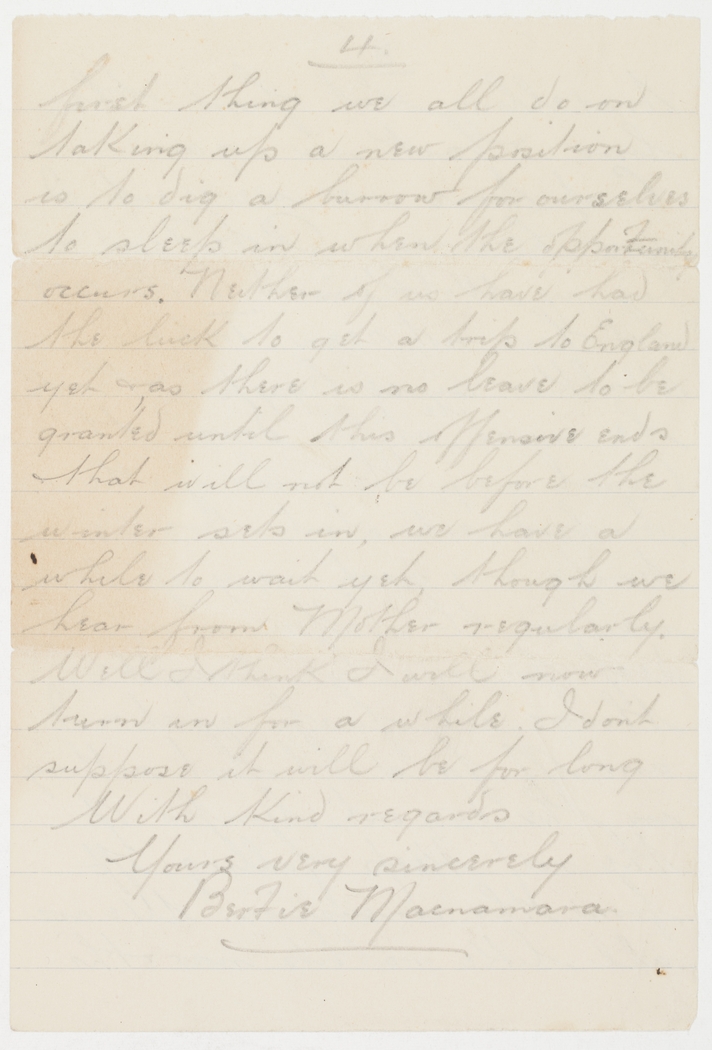 4.
first thing we all do on
taking up a new position
is to dig a burrow for ourselves
to sleep in when the opportunity
occurs. Neither of us have had
the luck to get a trip to England
yet & as there is no leave to be
granted until this offensive ends
that will not be before the
winter sets in, we have a
while to wait yet, though we
hear from Mother regularly.
Well I think I will now
turn in for a while. I dont
suppose it will be for long
With Kind regards
Yours very sincerely
Bertie Macnamara.